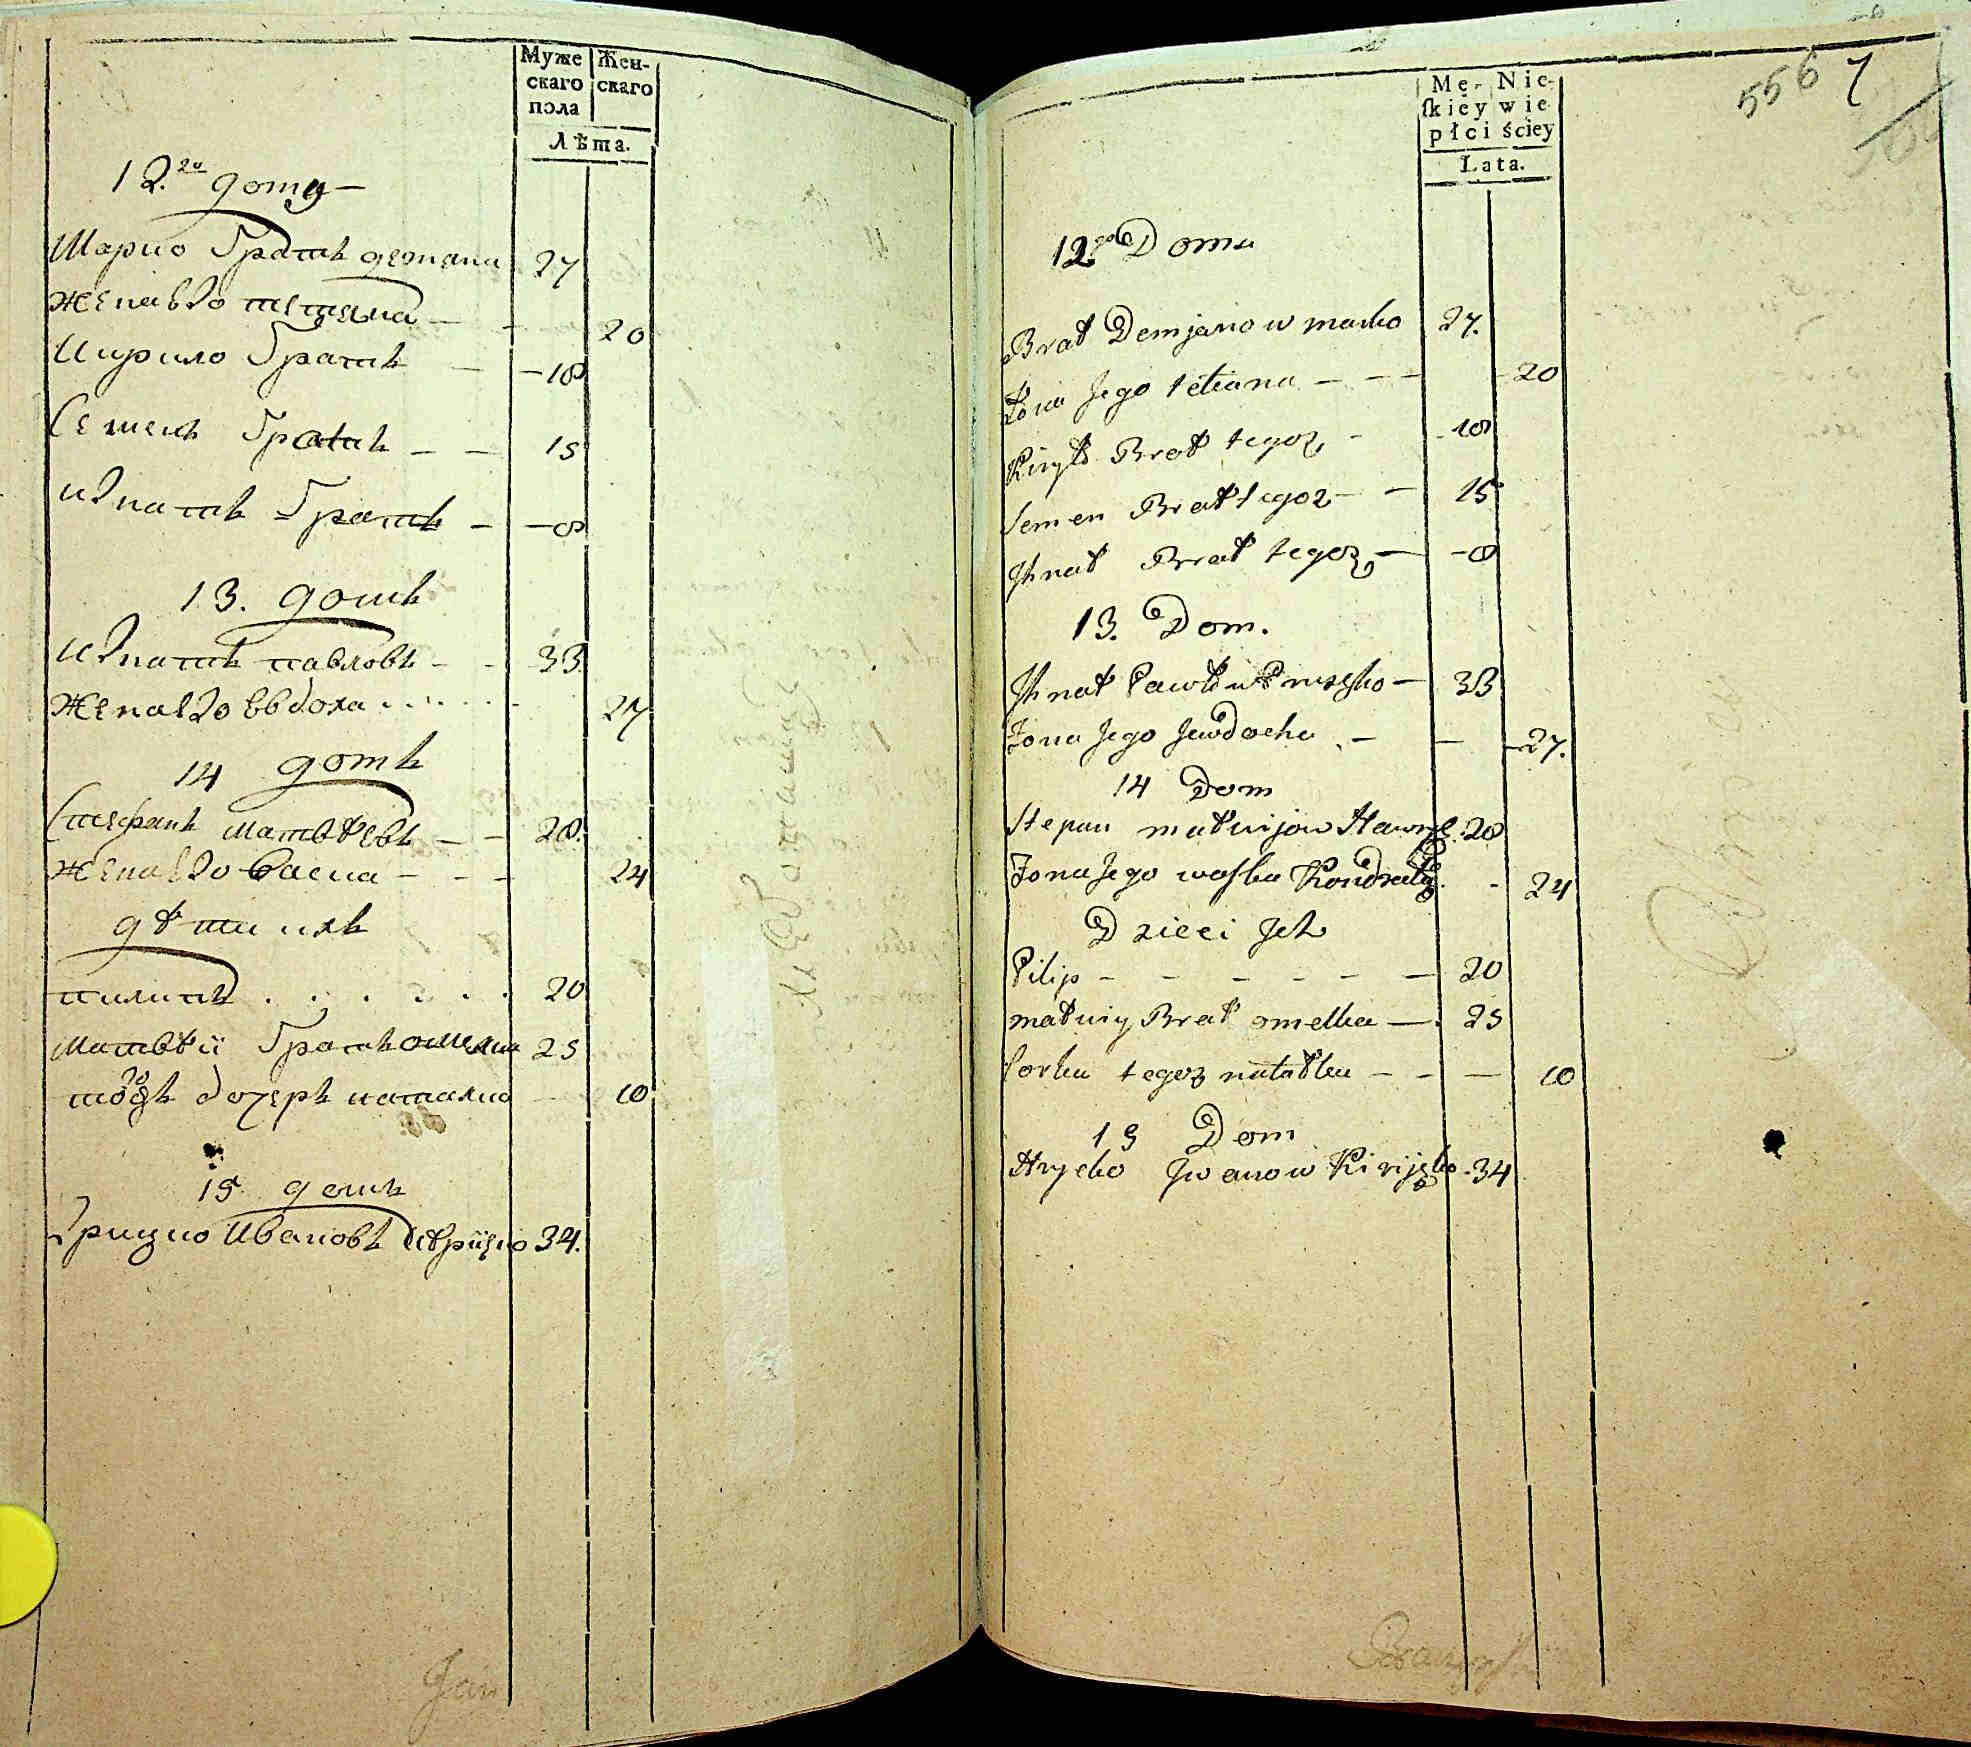 Муже
скаго
пола
Жен-
скаго
Лѣта.
12.го дому
Марко братъ демяна 27
жена его татяна 20
Кирило братъ 18
Семенъ братъ 15
игнатъ братъ 8
13. домъ
игнатъ павловъ 33
жена его евдоха 27
14 домъ
Стефанъ матвѣевъ 28.
жена его васка 24
дѣти ихъ
пилипъ 20
матвѣй братъ омелка 25
того дочеръ наталка 10
15 домъ
Грицко Ивановъ 34.
Mę-
skiey
płci
Nie-
wie
ściey
Lata.
556
7
12go Domu
Brat Demjanow marko 27.
Żona Jego tetiana 20
Kiryło Brat tegoz 18
Semen Brat tegoz 15
Jhnat Brat tegoz 8
13. Dom.
Jhnat Pawłow 33
Żona Jego Jewdocha 27.
14 Dom
Stepan matwijow 28
Żona Jego waska 24
Dzieci Jch
Pilip 20
matwiy Brat omelka 25
Corka tegoz natałka 10
15 Dom
Hrycko Jwanow 34
Jan